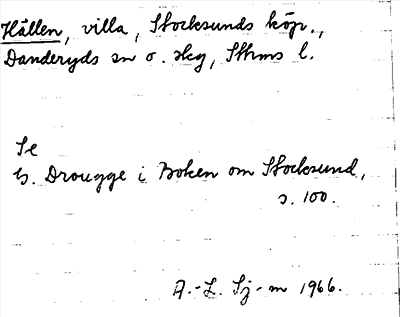 Hällen, villa, Stocksunds köp.,
Danderyds sn o. skg, Sthms l.
Se
G. Drougge i Boken om Stocksund,
s. 100.
A.-L. Sj-m 1966.